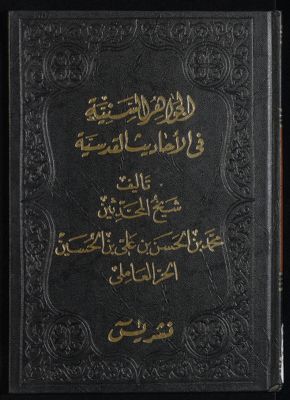 الجواهر السنية
في الأحاديث القدسية
تأليف
شيخ المحدثين
محمد بن الحسن بن علي بن الحسين
الحر العاملي
نشر يس